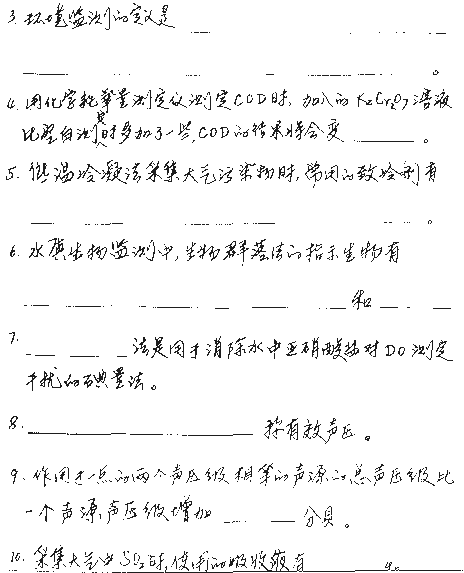 3. 环境监测的定义是 ___ ___ ___
___ ___ ___ ___ 。
4. 用化学耗氧量测定仪测定COD时, 加入的K₂Cr₂O₇溶液
比空白测定时多加了一些, COD的结果将会变 ______ 。
5. 低温冷凝法采集大气污染物时, 常用的致冷剂有
___ ___ ___ ___ 。
6. 水质生物监测中, 生物群落法的指示生物有
___ ___ ___ ___ ___ 和 ___ ___
7. ___ ___ ___ 法是用于消除水中亚硝酸盐对DO测定
干扰的碘量法。
8. ______________ 称有效声压。
9. 作用于一点的两个声压级相等的声源的总声压级比
一个声源声压级增加 ___ ___ 分贝。
10. 采集大气中SO₂时, 使用的吸收液有 ______